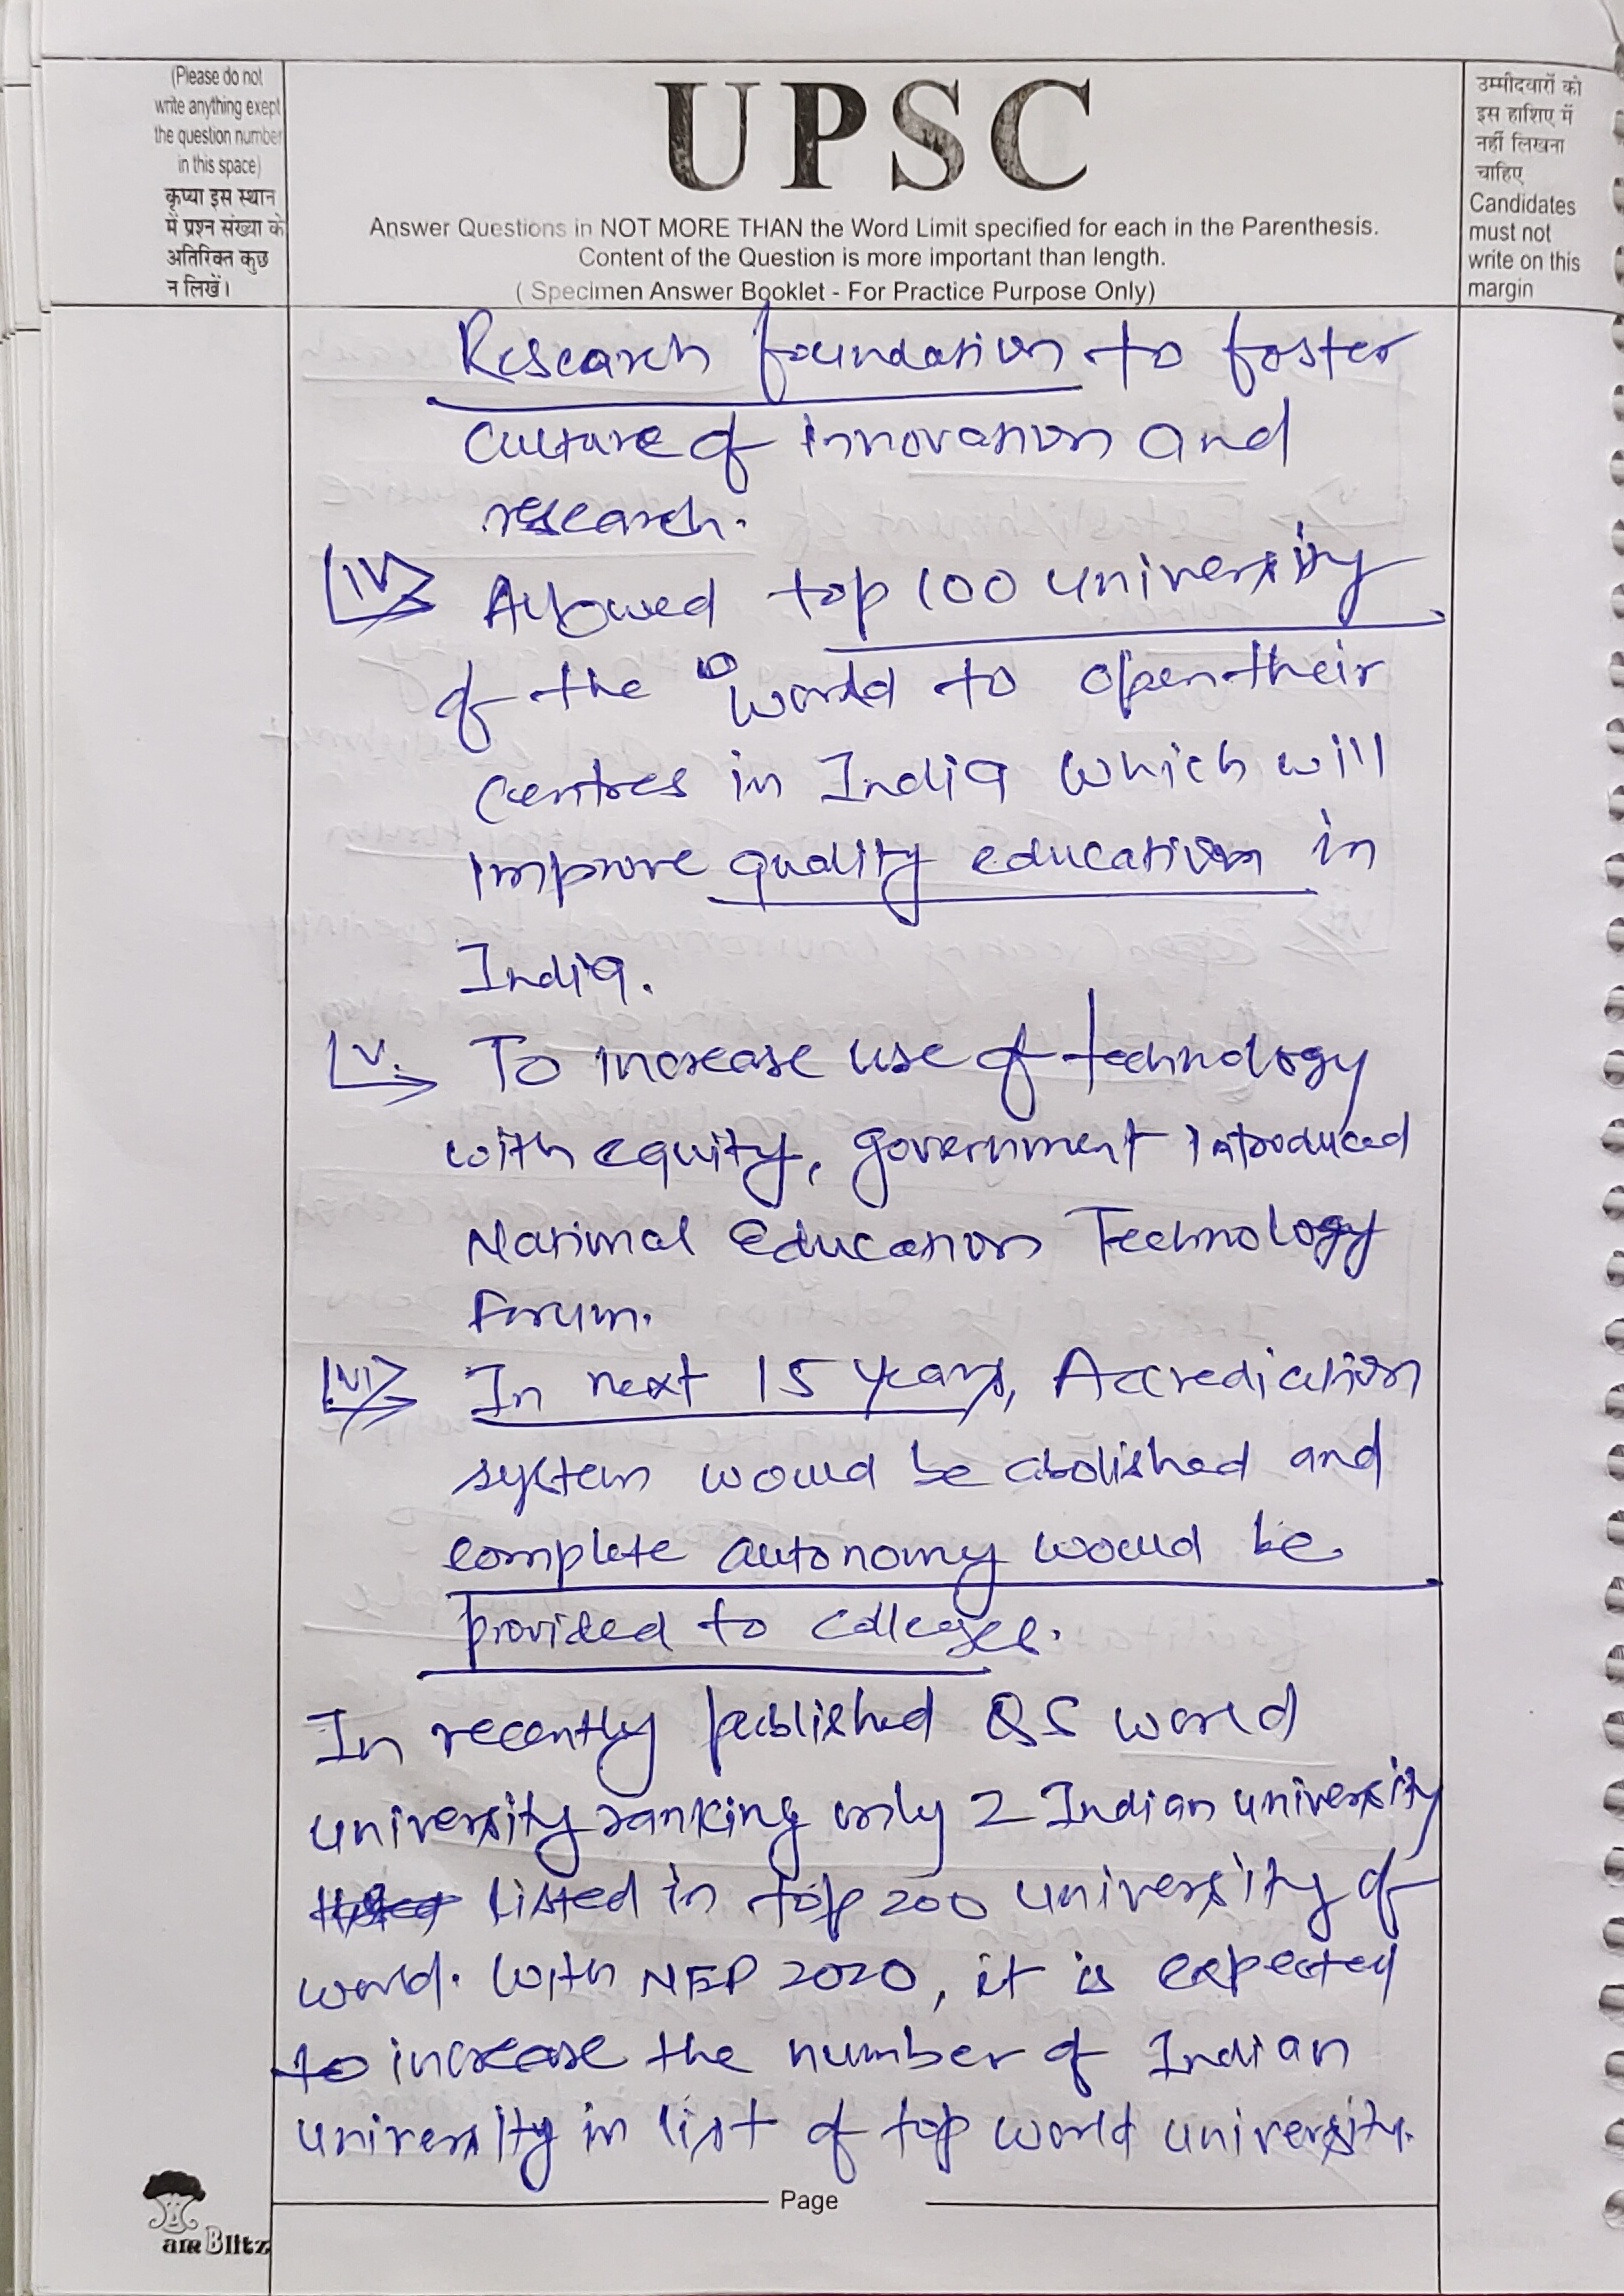 (Please do not
write anything exept
the question number
in this space)
कृप्या इस स्थान
में प्रश्न संख्या के
अतिरिक्त कुछ
न लिखें।
UPSC
Answer Questions in NOT MORE THAN the Word Limit specified for each in the Parenthesis.
Content of the Question is more important than length.
( Specimen Answer Booklet - For Practice Purpose Only)
उम्मीदवारों को
इस हाशिए में
नहीं लिखना
चाहिए
Candidates
must not
write on this
margin
Research foundation to foster
culture of innovation and
research.
iv Allowed top 100 university
of the world to open their
centres in India which will
improve quality education in
India.
v. To increase use of technology
with equity, government introduced
National Education Technology
Forum.
vi In next 15 years, Accrediction
system would be abolished and
complete autonomy would be
provided to colleges.
In recently published QS world
university ranking only 2 Indian university
listed in top 200 university of
world. With NEP 2020, it is expected
to increase the number of Indian
university in list of top world university.
Page
am Blitz